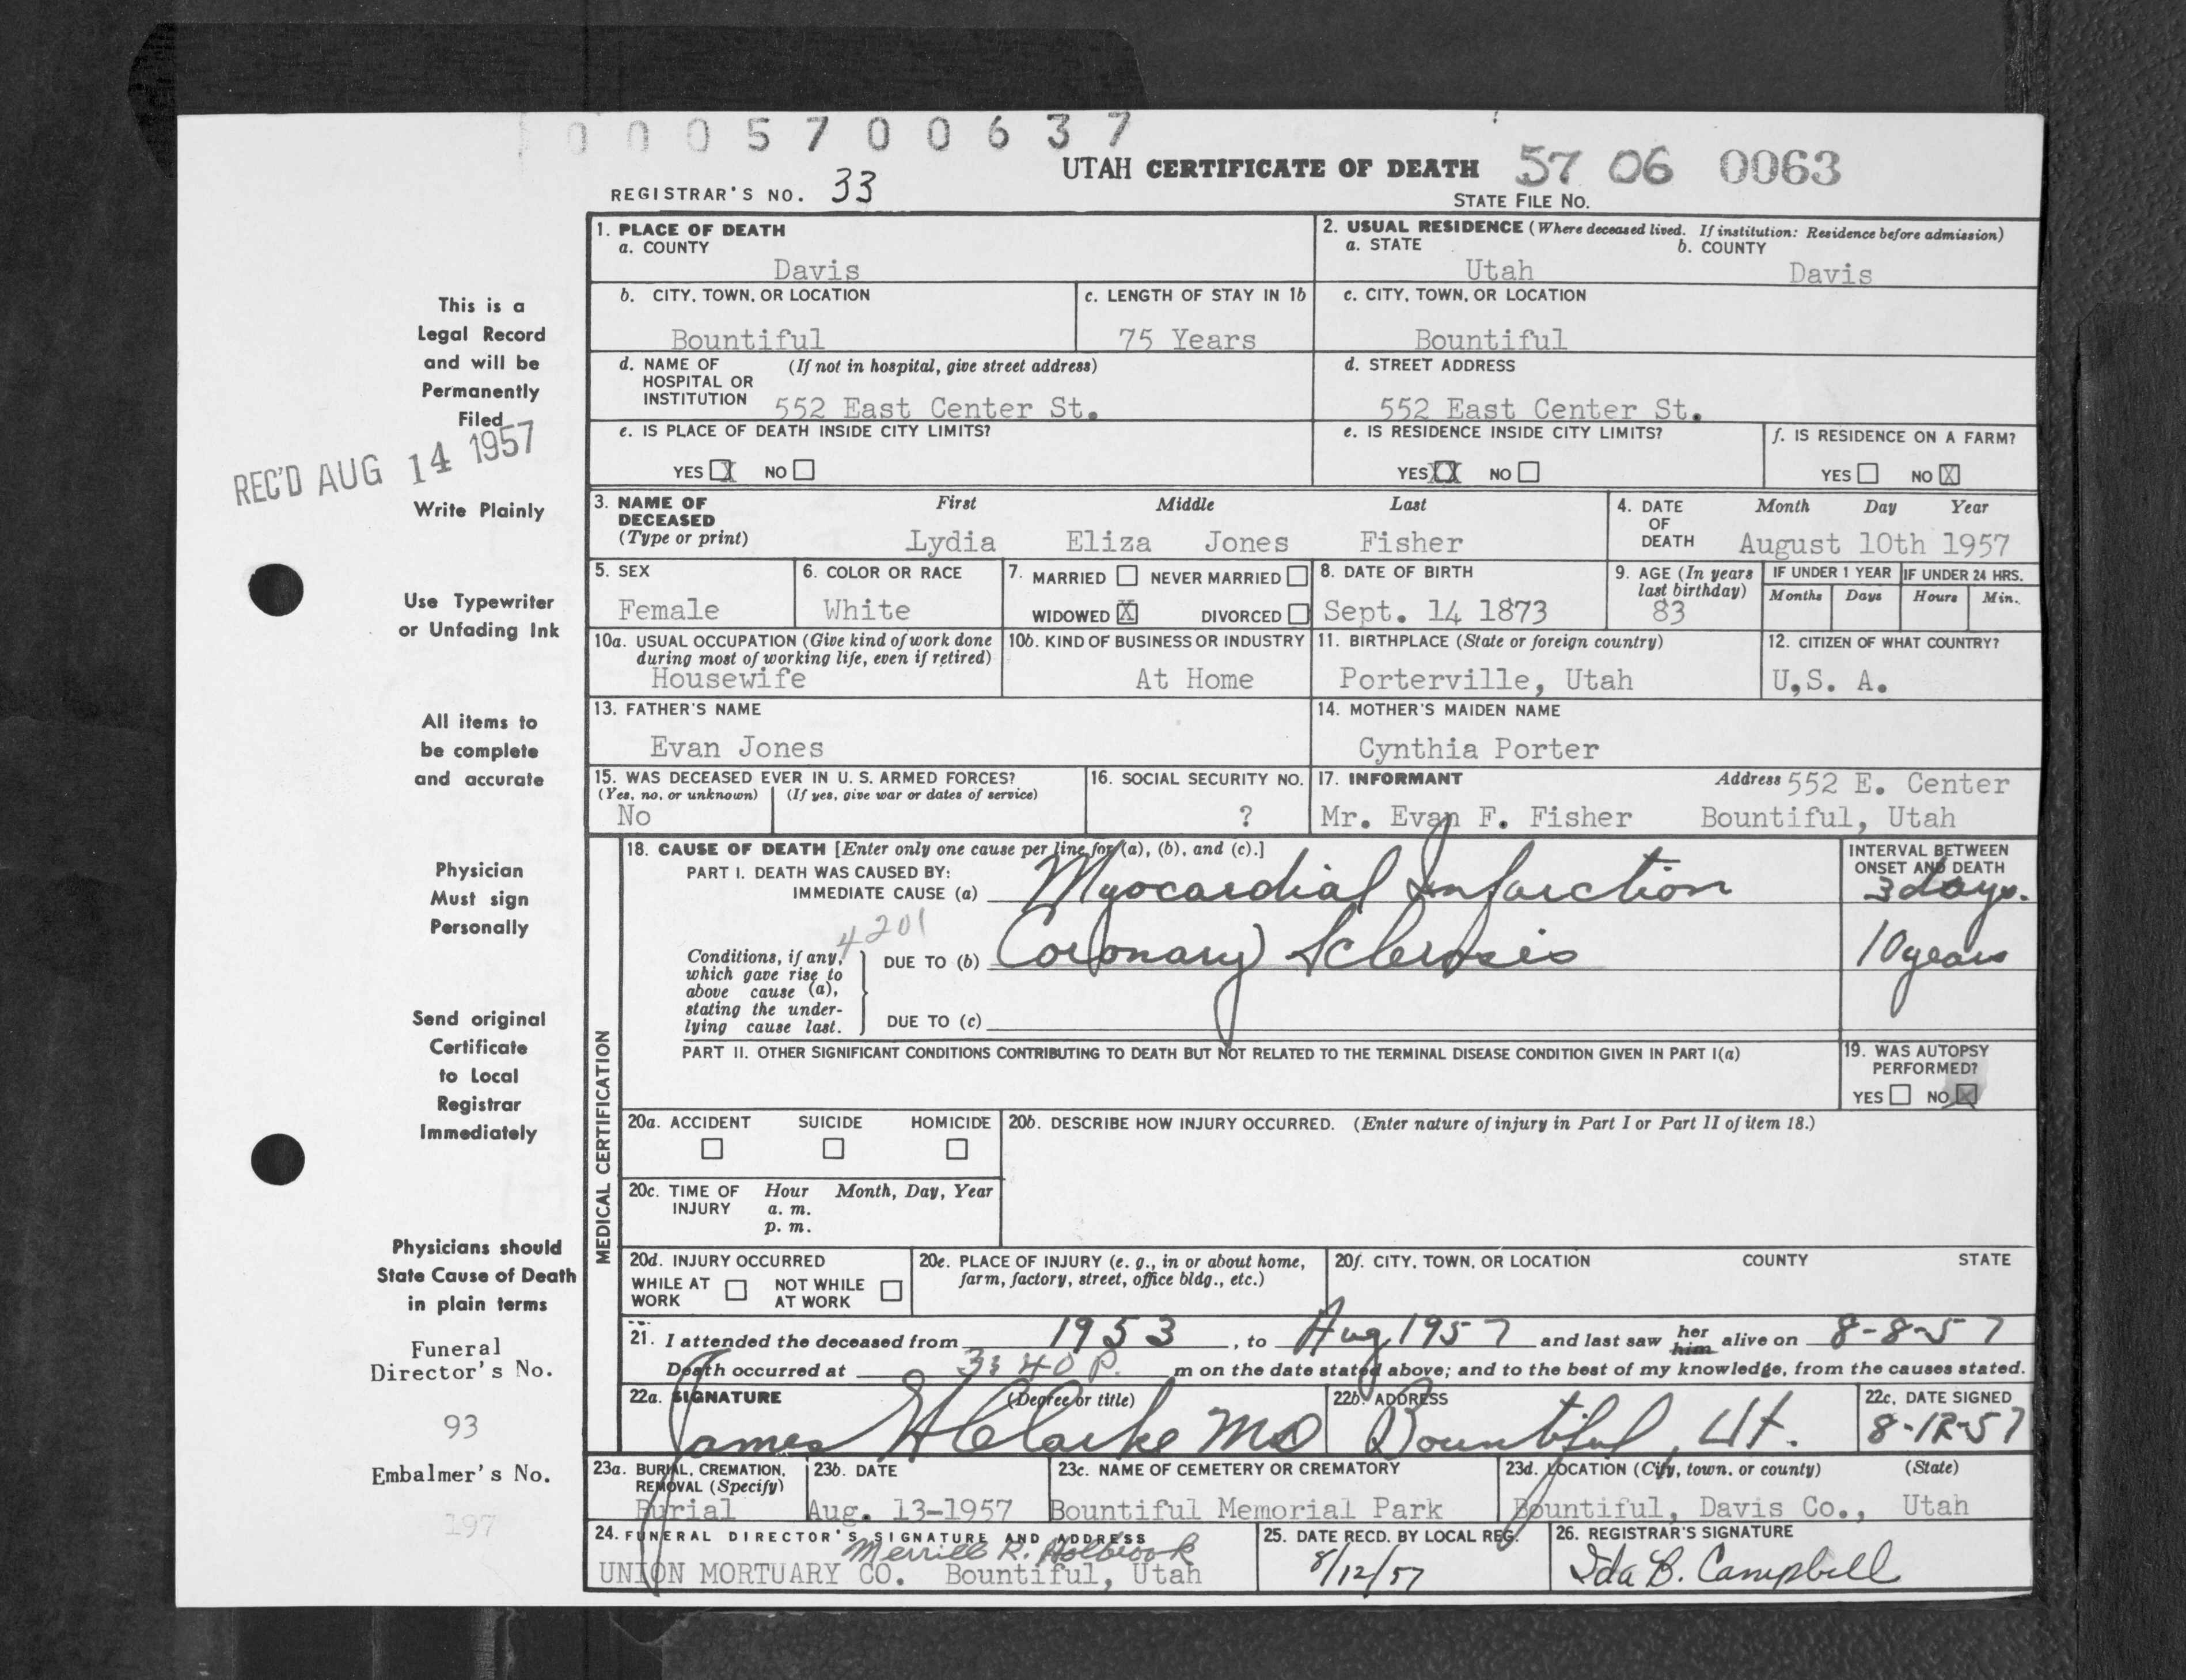 0005700637
UTAH CERTIFICATE OF DEATH 57 06 0063
REGISTRAR'S NO. 33 STATE FILE NO.
1. PLACE OF DEATH
a. COUNTY
Davis
2. USUAL RESIDENCE (Where deceased lived. If institution: Residence before admission)
a. STATE b. COUNTY
Utah Davis
b. CITY, TOWN, OR LOCATION
Bountiful
c. LENGTH OF STAY IN 1b
75 Years
c. CITY, TOWN, OR LOCATION
Bountiful
d. NAME OF (If not in hospital, give street address)
HOSPITAL OR
INSTITUTION 552 East Center St.
d. STREET ADDRESS
552 East Center St.
e. IS PLACE OF DEATH INSIDE CITY LIMITS?
YES X NO
e. IS RESIDENCE INSIDE CITY LIMITS?
YES XX NO
f. IS RESIDENCE ON A FARM?
YES NO X
3. NAME OF First Middle Last
DECEASED
(Type or print) Lydia Eliza Jones Fisher
4. DATE Month Day Year
OF
DEATH August 10th 1957
5. SEX
Female
6. COLOR OR RACE
White
7. MARRIED NEVER MARRIED
WIDOWED X DIVORCED
8. DATE OF BIRTH
Sept. 14 1873
9. AGE (In years
last birthday)
83
IF UNDER 1 YEAR IF UNDER 24 HRS.
Months Days Hours Min.
10a. USUAL OCCUPATION (Give kind of work done
during most of working life, even if retired)
Housewife
10b. KIND OF BUSINESS OR INDUSTRY
At Home
11. BIRTHPLACE (State or foreign country)
Porterville, Utah
12. CITIZEN OF WHAT COUNTRY?
U.S. A.
13. FATHER'S NAME
Evan Jones
14. MOTHER'S MAIDEN NAME
Cynthia Porter
15. WAS DECEASED EVER IN U. S. ARMED FORCES?
(Yes, no, or unknown) (If yes, give war or dates of service)
No
16. SOCIAL SECURITY NO.
?
17. INFORMANT Address 552 E. Center
Mr. Evan F. Fisher Bountiful, Utah
MEDICAL CERTIFICATION
18. CAUSE OF DEATH [Enter only one cause per line for (a), (b), and (c).]
PART I. DEATH WAS CAUSED BY:
IMMEDIATE CAUSE (a) Myocardial Infarction
INTERVAL BETWEEN
ONSET AND DEATH
3 days.
4201
Conditions, if any,
which gave rise to
above cause (a),
stating the under-
lying cause last.
DUE TO (b) Coronary Sclerosis 10 years
DUE TO (c)
PART II. OTHER SIGNIFICANT CONDITIONS CONTRIBUTING TO DEATH BUT NOT RELATED TO THE TERMINAL DISEASE CONDITION GIVEN IN PART I(a)
19. WAS AUTOPSY
PERFORMED?
YES NO X
20a. ACCIDENT SUICIDE HOMICIDE
20b. DESCRIBE HOW INJURY OCCURRED. (Enter nature of injury in Part I or Part II of item 18.)
20c. TIME OF Hour Month, Day, Year
INJURY a. m.
p. m.
20d. INJURY OCCURRED
WHILE AT NOT WHILE
WORK AT WORK
20e. PLACE OF INJURY (e. g., in or about home,
farm, factory, street, office bldg., etc.)
20f. CITY, TOWN, OR LOCATION COUNTY STATE
21. I attended the deceased from 1953, to Aug 1957 and last saw her him alive on 8-8-57
Death occurred at 3:40 P. m on the date stated above; and to the best of my knowledge, from the causes stated.
22a. SIGNATURE (Degree or title)
James H Clarke MD
22b. ADDRESS
Bountiful, Ut.
22c. DATE SIGNED
8-12-57
23a. BURIAL, CREMATION,
REMOVAL (Specify)
Burial
23b. DATE
Aug. 13-1957
23c. NAME OF CEMETERY OR CREMATORY
Bountiful Memorial Park
23d. LOCATION (City, town, or county) (State)
Bountiful, Davis Co., Utah
24. FUNERAL DIRECTOR'S SIGNATURE AND ADDRESS
Merrill R. Holbrook
UNION MORTUARY CO. Bountiful, Utah
25. DATE RECD. BY LOCAL REG.
8/12/57
26. REGISTRAR'S SIGNATURE
Ida B. Campbell
This is a
Legal Record
and will be
Permanently
Filed
REC'D AUG 14 1957
Write Plainly
Use Typewriter
or Unfading Ink
All items to
be complete
and accurate
Physician
Must sign
Personally
Send original
Certificate
to Local
Registrar
Immediately
Physicians should
State Cause of Death
in plain terms
Funeral
Director's No.
93
Embalmer's No.
197